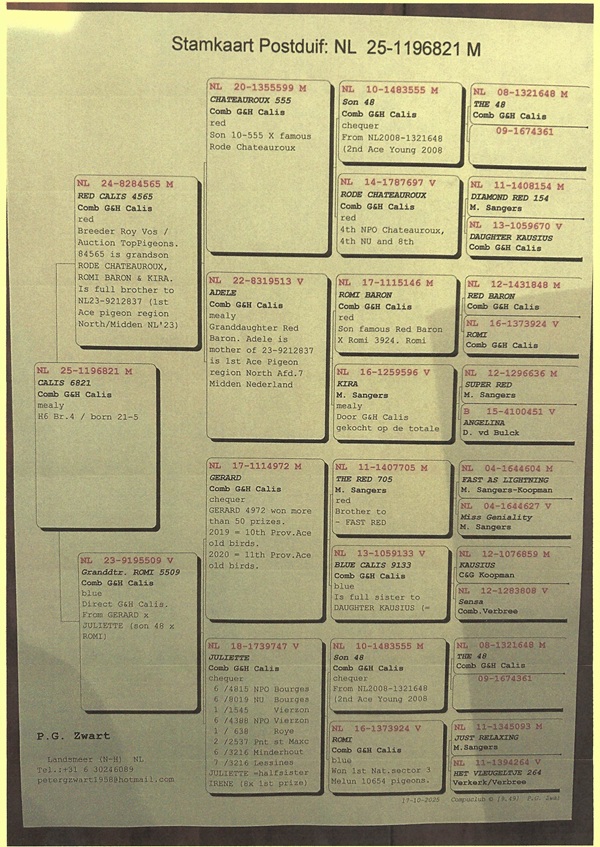 Stamkaart Postduif: NL 25-1196821 M
NL 25-1196821 M
CALIS 6821
Comb G&H Calis
mealy
H6 Br.4 / born 21-5
NL 24-8284565 M
RED CALIS 4565
Comb G&H Calis
red
Breeder Roy Vos /
Auction TopPigeons.
84565 is grandson
RODE CHATEAUROUX,
ROMI BARON & KIRA.
Is full brother to
NL23-9212837 (1st
Ace pigeon region
North/Midden NL'23)
NL 23-9195509 V
Granddtr. ROMI 5509
Comb G&H Calis
blue
Direct G&H Calis.
From GERARD x
JULIETTE (son 48 x
ROMI)
NL 20-1355599 M
CHATEAUROUX 555
Comb G&H Calis
red
Son 10-555 X famous
Rode Chateauroux
NL 22-8319513 V
ADELE
Comb G&H Calis
mealy
Granddaughter Red
Baron. Adele is
mother of 23-9212837
is 1st Ace Pigeon
region North Afd.7
Midden Nederland
NL 17-1114972 M
GERARD
Comb G&H Calis
chequer
GERARD 4972 won more
than 50 prizes.
2019 = 10th Prov.Ace
old birds.
2020 = 11th Prov.Ace
old birds.
NL 18-1739747 V
JULIETTE
Comb G&H Calis
chequer
6 /4815 NPO Bourges
6 /8019 NU Bourges
1 /1545 Vierzon
6 /4388 NPO Vierzon
1 / 638 Roye
2 /2537 Pnt st Maxc
6 /3216 Minderhout
7 /3216 Lessines
JULIETTE =halfsister
IRENE (8x 1st prize)
NL 10-1483555 M
Son 48
Comb G&H Calis
chequer
From NL2008-1321648
(2nd Ace Young 2008
NL 14-1787697 V
RODE CHATEAUROUX
Comb G&H Calis
red
4th NPO Chateauroux,
4th NU and 8th
NL 17-1115146 M
ROMI BARON
Comb G&H Calis
red
Son famous Red Baron
X Romi 3924. Romi
NL 16-1259596 V
KIRA
M. Sangers
mealy
Door G&H Calis
gekocht op de totale
NL 11-1407705 M
THE RED 705
M. Sangers
red
Brother to
~ FAST RED
NL 13-1059133 V
BLUE CALIS 9133
Comb G&H Calis
blue
Is full sister to
DAUGHTER KAUSIUS (=
NL 10-1483555 M
Son 48
Comb G&H Calis
chequer
From NL2008-1321648
(2nd Ace Young 2008
NL 16-1373924 V
ROMI
Comb G&H Calis
blue
Won 1st Nat.sector 3
Melun 10654 pigeons.
NL 08-1321648 M
THE 48
Comb G&H Calis
09-1674361
NL 11-1408154 M
DIAMOND RED 154
M. Sangers
NL 13-1059670 V
DAUGHTER KAUSIUS
Comb G&H Calis
NL 12-1431848 M
RED BARON
Comb G&H Calis
NL 16-1373924 V
ROMI
Comb G&H Calis
NL 12-1296636 M
SUPER RED
M. Sangers
B 15-4100451 V
ANGELINA
D. vd Bulck
NL 04-1644604 M
FAST AS LIGHTNING
M. Sangers-Koopman
NL 04-1644627 V
Miss Geniality
M. Sangers
NL 12-1076859 M
KAUSIUS
C&G Koopman
NL 12-1283808 V
Sensa
Comb.Verbree
NL 08-1321648 M
THE 48
Comb G&H Calis
09-1674361
NL 11-1345093 M
JUST RELAXING
M. Sangers
NL 11-1394264 V
HET VLEUGELTJE 264
Verkerk/Verbree
P.G. Zwart
Landsmeer (N-H) NL
Tel.:+31 6 30246089
petergzwart1958@hotmail.com
17-10-2025 Compuclub © [9.49] P.G. Zwar